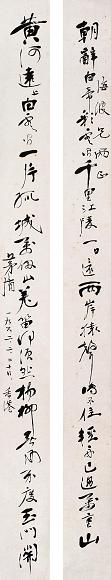 朝辭白帝彩雲間千里江陵一日還兩岸猿聲啼不住輕舟已過萬重山
海波兄正
黃河遠上白雲間一片孤城萬仞山羌笛何須怨楊柳春風不度玉門關
香港